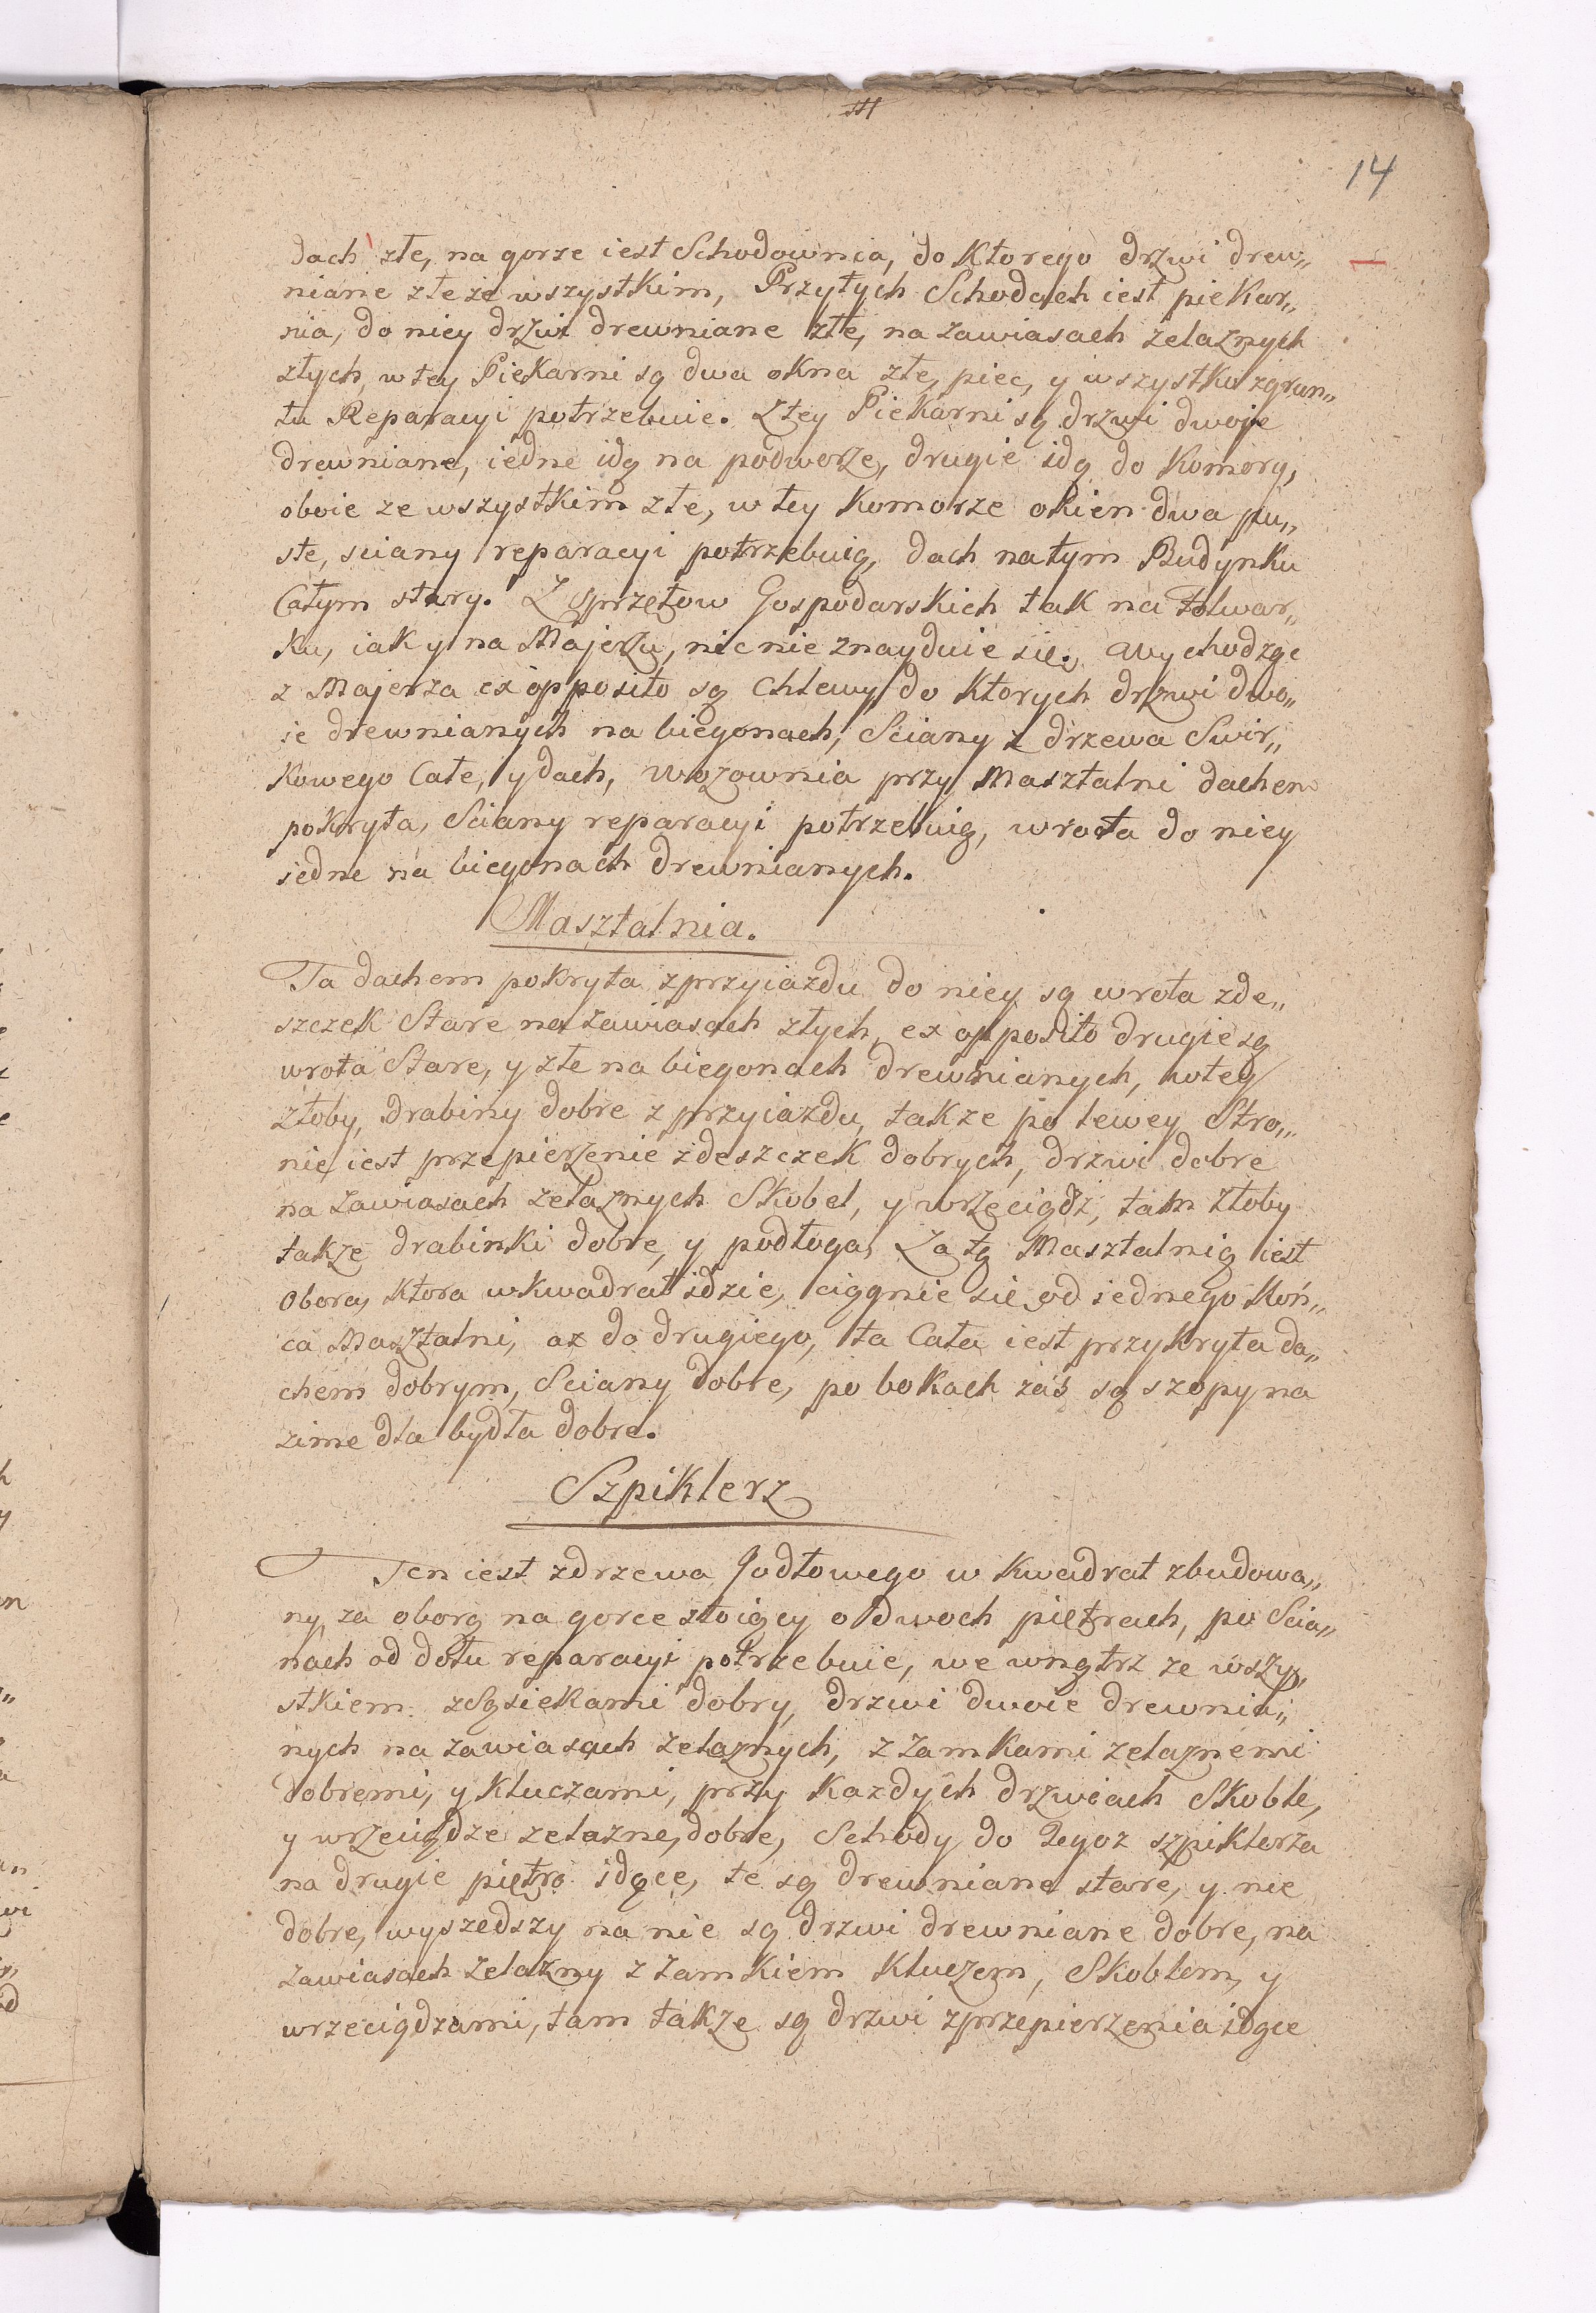 14
dach złe, na gorze iest Schodownia, do Ktorego drzwi drew„
niane złe ze wszystkim, Przytych Schodach iest piekar„
nia, do niey drzwi drewniane złe, na zawiasach żelaznych
złych, w tey Piekarni są dwa okna złe, piec, y wszystko zgrun„
tu Reparacyi potrzebuie. Z tey Piekarni są drzwi dwoje
drewniane, iedne idą na podworze, drugie idą do Komory,
oboie ze wszystkim złe, w tey komorze okien dwa pu„
ste, sciany reparacyi potrzebuią, dach natym Budynku
Całym stary. Z Sprzętow Gospodarskich tak na Folwar„
ku, iak y na Majerzu, nic nie znayduie się. Wychodząc
z Majerza ex opposito są Chlewy do Ktorych drzwi dwo„
ie drewnianych na biegonach, Sciany z drzewa Swir„
kowego Całe, y dach, Wozownia przy Masztalni dachem
pokryta, Sciany reparacyi potrzebuią, wrota do niey
iedne na biegonach drewnianych.
Masztalnia.
Ta dachem pokryta z przyiazdu do niey są wrota zde„
szczek Stare na zawiasach złych, ex opposito drugie są
wrota Stare, y złe na biegonach drewnianych, w tey
złoby, drabiny dobre z przyiazdu, takze po lewey Stro„
nie iest przepierzenie zdeszczek dobrych, drzwi dobre
na zawiasach zelaznych Skobel, y wrzeciądz, tam złoby
takze drabinki dobre, y podłoga, Za tą Masztalnią iest
Obora, ktora wkwadrat idzie, ciągnie się od iednego Koń„
ca Masztalni, az do drugiego, ta Cała iest przykryta da„
chem dobrym, Sciany dobre, po bokach zaś są szopy na
zime dla bydła dobre.
Szpiklerz
Ten iest zdrzewa Jodłowego w Kwadrat zbudowa„
ny, za oborą na gorce stoiący o dwoch piętrach, po Scia„
nach od dołu reparacyi potrzebuie, we wnątrz ze wszy„
stkiem zSąsiekami dobry, drzwi dwoie drewnia„
nych na zawiasach zelaznych, z zamkami zelaznemi
dobremi, y kluczami, przy Kazdych drzwiach Skoble,
y wrzeciądze zelazne, dobre, Schody do Tegoz szpiklerza
na drugie piętro idące, te są drewniane stare, y nie
dobre, wyszedszy na nie są drzwi drewniane dobre, na
zawiasach zelazny z zamkiem Kluczem, Skoblem, y
wrzeciądzami, tam takze są drzwi zprzepierzenia idące